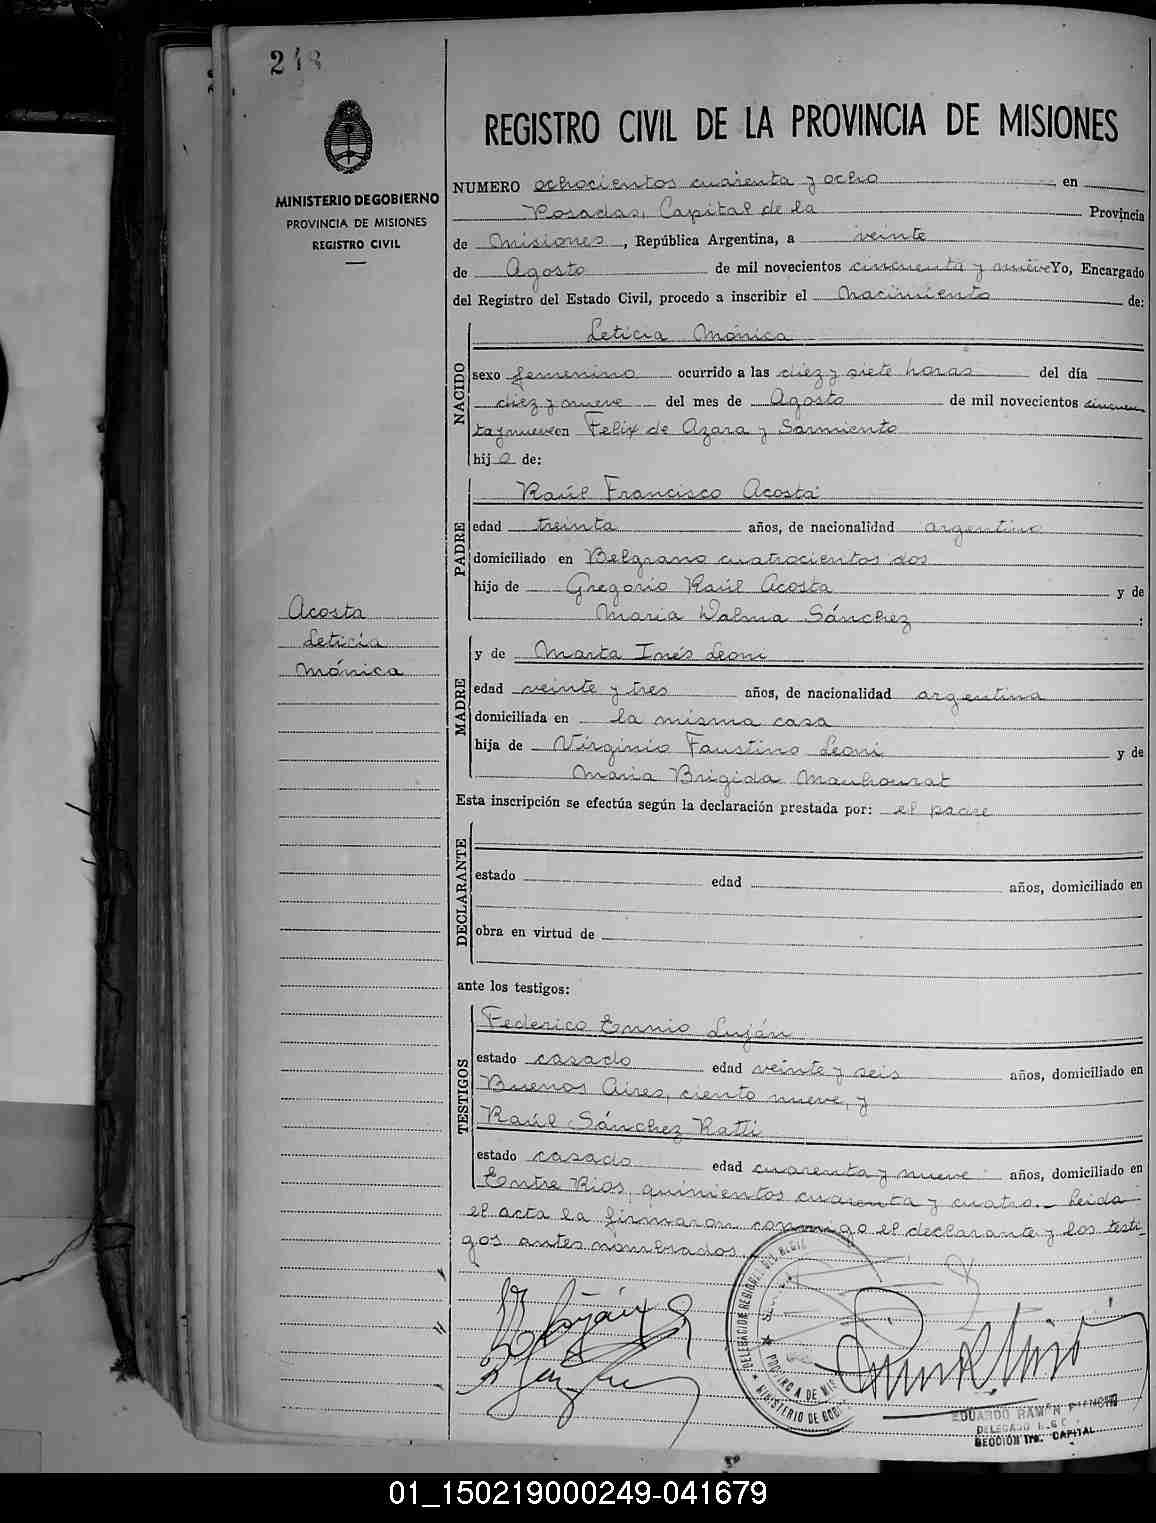 248
MINISTERIO DE GOBIERNO
PROVINCIA DE MISIONES
REGISTRO CIVIL
Acosta
Leticia
Mónica
REGISTRO CIVIL DE LA PROVINCIA DE MISIONES
NUMERO ochocientos cuarenta y ocho en
Posadas, Capital de la Provincia
de Misiones, República Argentina, a veinte
de Agosto de mil novecientos cincuenta y nueve Yo, Encargado
del Registro del Estado Civil, procedo a inscribir el Nacimiento de:
NACIDO
Leticia Mónica
sexo femenino ocurrido a las diez y siete horas del día
diez y nueve del mes de Agosto de mil novecientos cincuen
ta y nueve en Felix de Azara y Sarmiento
hija de:
PADRE
Raúl Francisco Acosta
edad treinta años, de nacionalidad argentino
domiciliado en Belgrano cuatrocientos dos
hijo de Gregorio Raúl Acosta y de
Maria Walma Sánchez :
MADRE
y de Marta Inés Leoni
edad veinte y tres años, de nacionalidad argentina
domiciliada en la misma casa
hija de Virginio Faustino Leoni y de
Maria Brigida Mauhourat
Esta inscripción se efectúa según la declaración prestada por: el padre
DECLARANTE
estado edad años, domiciliado en
obra en virtud de
ante los testigos:
TESTIGOS
Federico Ennio Luján
estado casado edad veinte y seis años, domiciliado en
Buenos Aires, ciento nueve, y
Raúl Sánchez Ratti
estado casado edad cuarenta y nueve años, domiciliado en
Entre Rios, quinientos cuarenta y cuatro.- Leida
el acta la firmaron conmigo el declarante y los testi-
gos antes nombrados.
DELEGACION REGIONAL DEL REGIS
PROVINCIA DE MIS
MINISTERIO DE GOBIE
EDUARDO RAMON
DELEGADO
SECCION CAPITAL
01_150219000249-041679